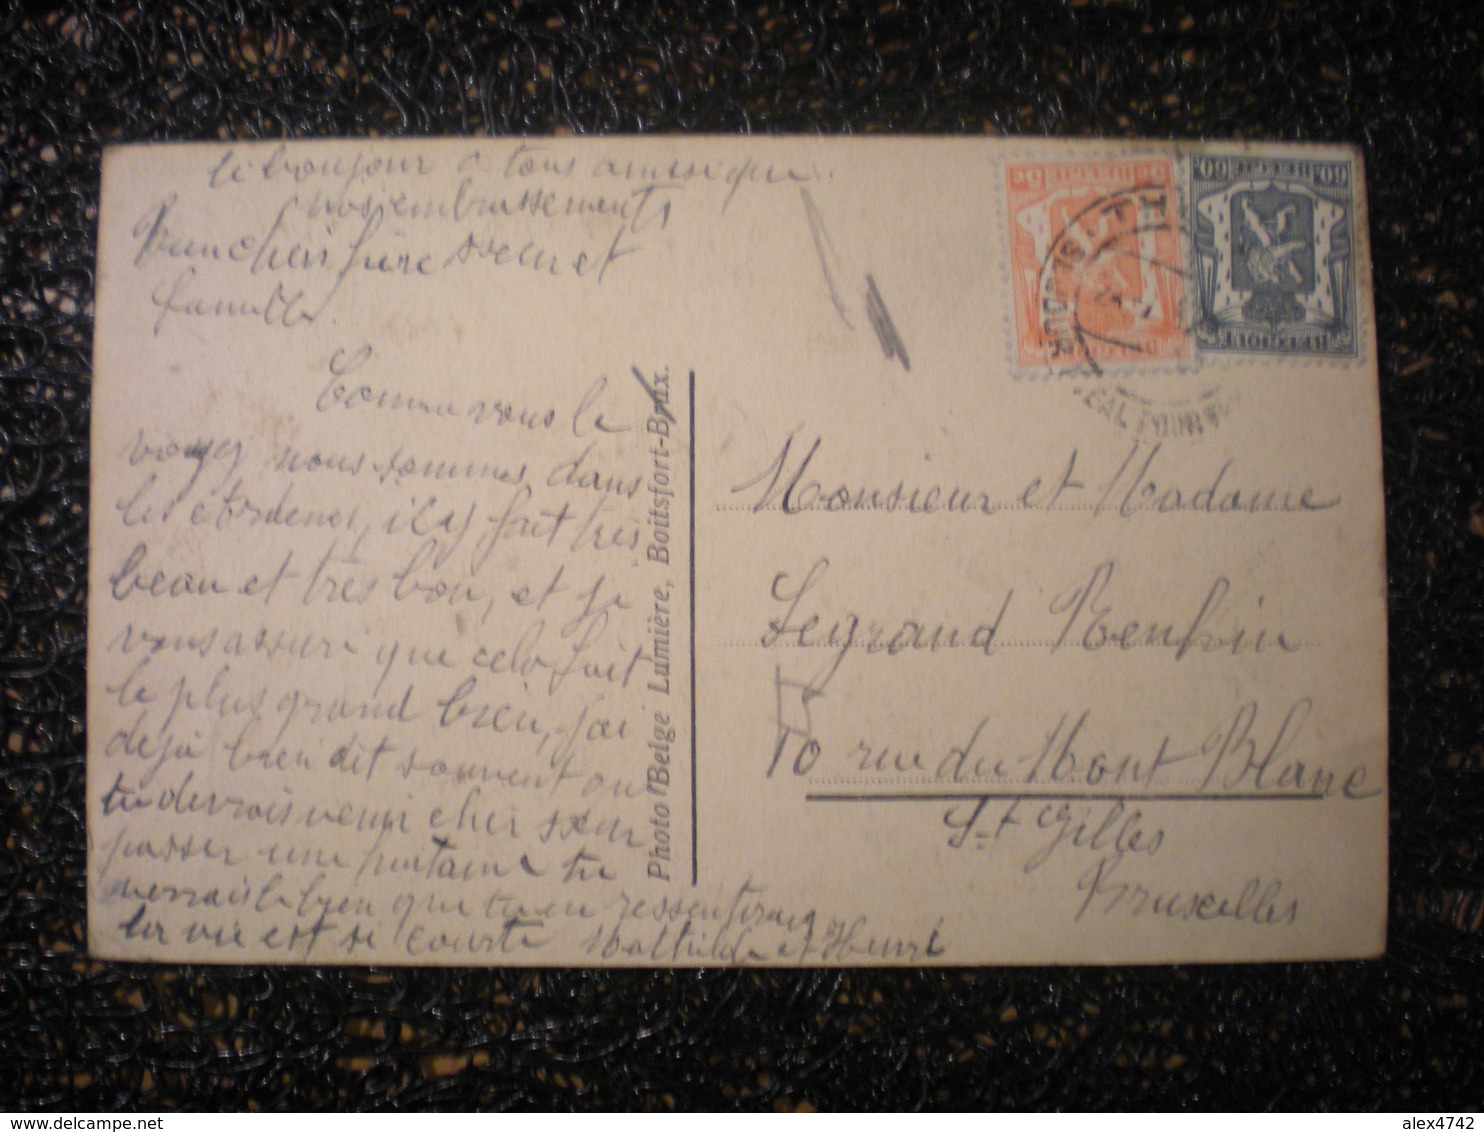 le bonjour à tous ainsi que
nos embrassements
Bien chers frère sœur et
famille.
Comme vous le
voyez nous sommes dans
les Ardenes, il y fait très
beau et très bon, et je
vous assure que cela fait
le plus grand bien, j'ai
déjà bien dit souvent que
tu devrais venir cher sœur
passer une tu
verrais le bien que tu en ressentirais
la vie est si courte Mathilde et Henri
Photo Belge Lumière, Boitsfort-Brux.
BELGIE
BELGIQUE
60 BELGIE 60
BELGIQUE
Monsieur et Madame
Legrand Renkin
10 rue du Mont Blanc
St Gilles
Bruxelles
alex4742
delcampe.net